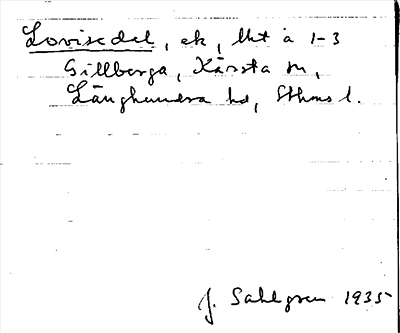 Lovisedal, ek, lht å 1-3
Gillberga, Kårsta sn,
Långhundra hd, Sthms l.
J. Sahlgren 1935